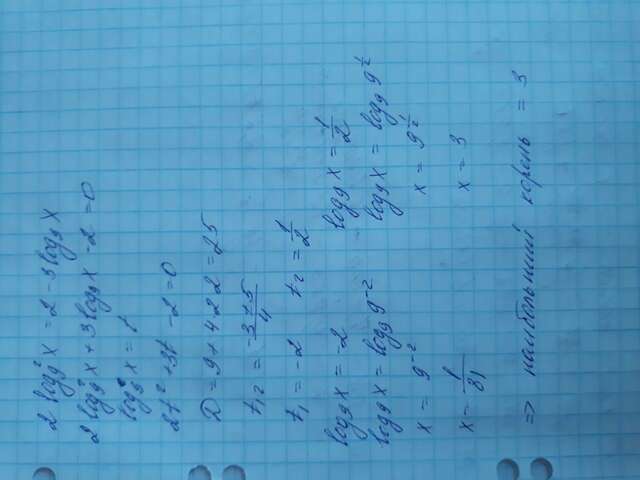 2 log₉² x = 2 - 3 log₉ x
2 log₉² x + 3 log₉ x - 2 = 0
log₉ x = t
2t² + 3t - 2 = 0
D = 9 + 4·2·2 = 25
t₁,₂ = (-3 ± 5)/4
t₁ = -2 t₂ = 1/2
log₉ x = -2 log₉ x = 1/2
log₉ x = log₉ 9⁻² log₉ x = log₉ 9^(1/2)
x = 9⁻² x = 9^(1/2)
x = 1/81 x = 3
=> наибольший корень = 3